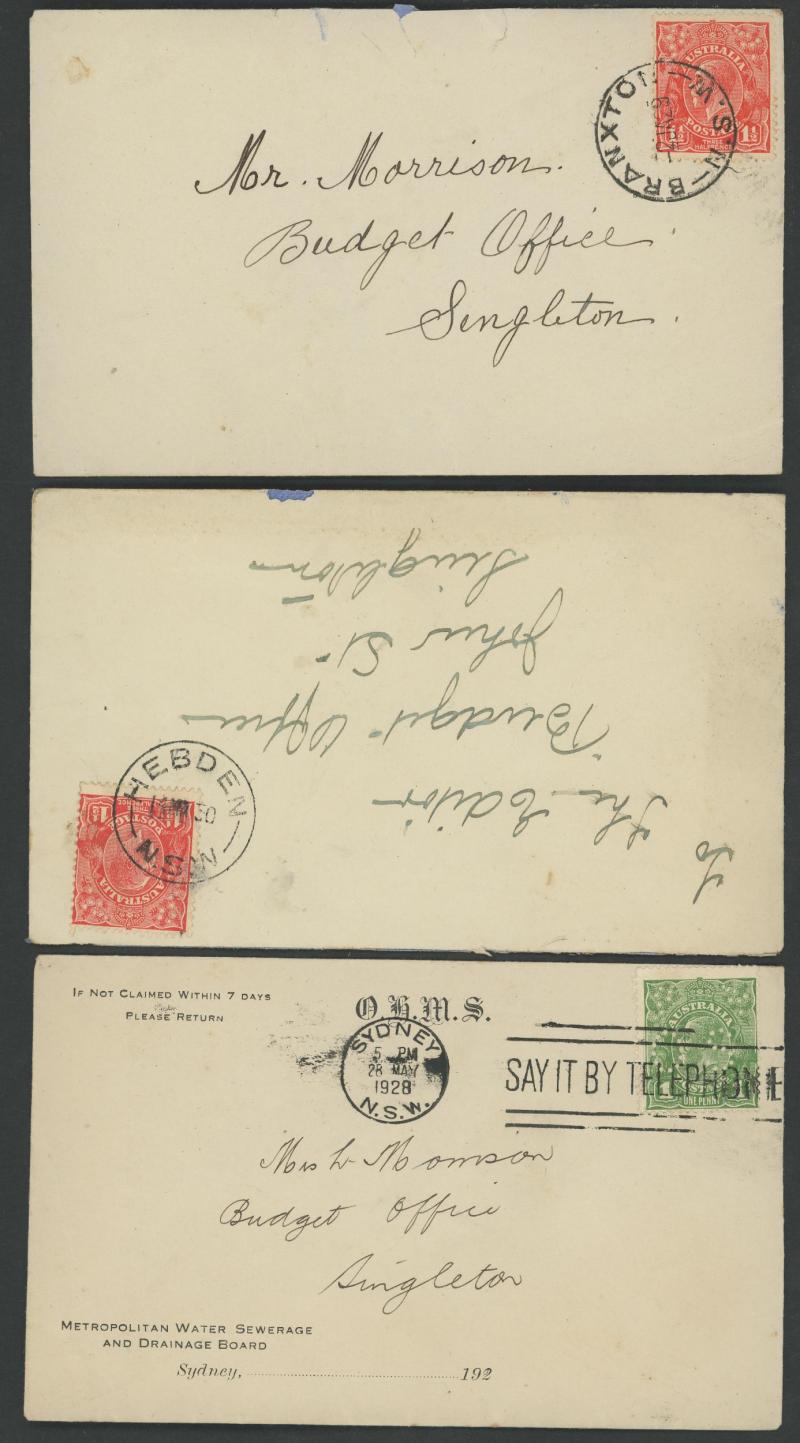 AUSTRALIA
POSTAGE
1½
THREE
HALFPENCE
BRANXTON
N.S.W
Mr. Morrison.
Budget Office.
Singleton.
To The Editor
Budget Office
John St
Singleton
HEBDEN
30
N.S.W
AUSTRALIA
POSTAGE
1½
IF NOT CLAIMED WITHIN 7 DAYS
PLEASE RETURN
O.H.M.S.
SYDNEY
5 PM
28 MAY
1928
N.S.W.
SAY IT BY TELEPHONE
AUSTRALIA
ONE PENNY
Morrison
Budget Office
Singleton
METROPOLITAN WATER SEWERAGE
AND DRAINAGE BOARD
Sydney, 192